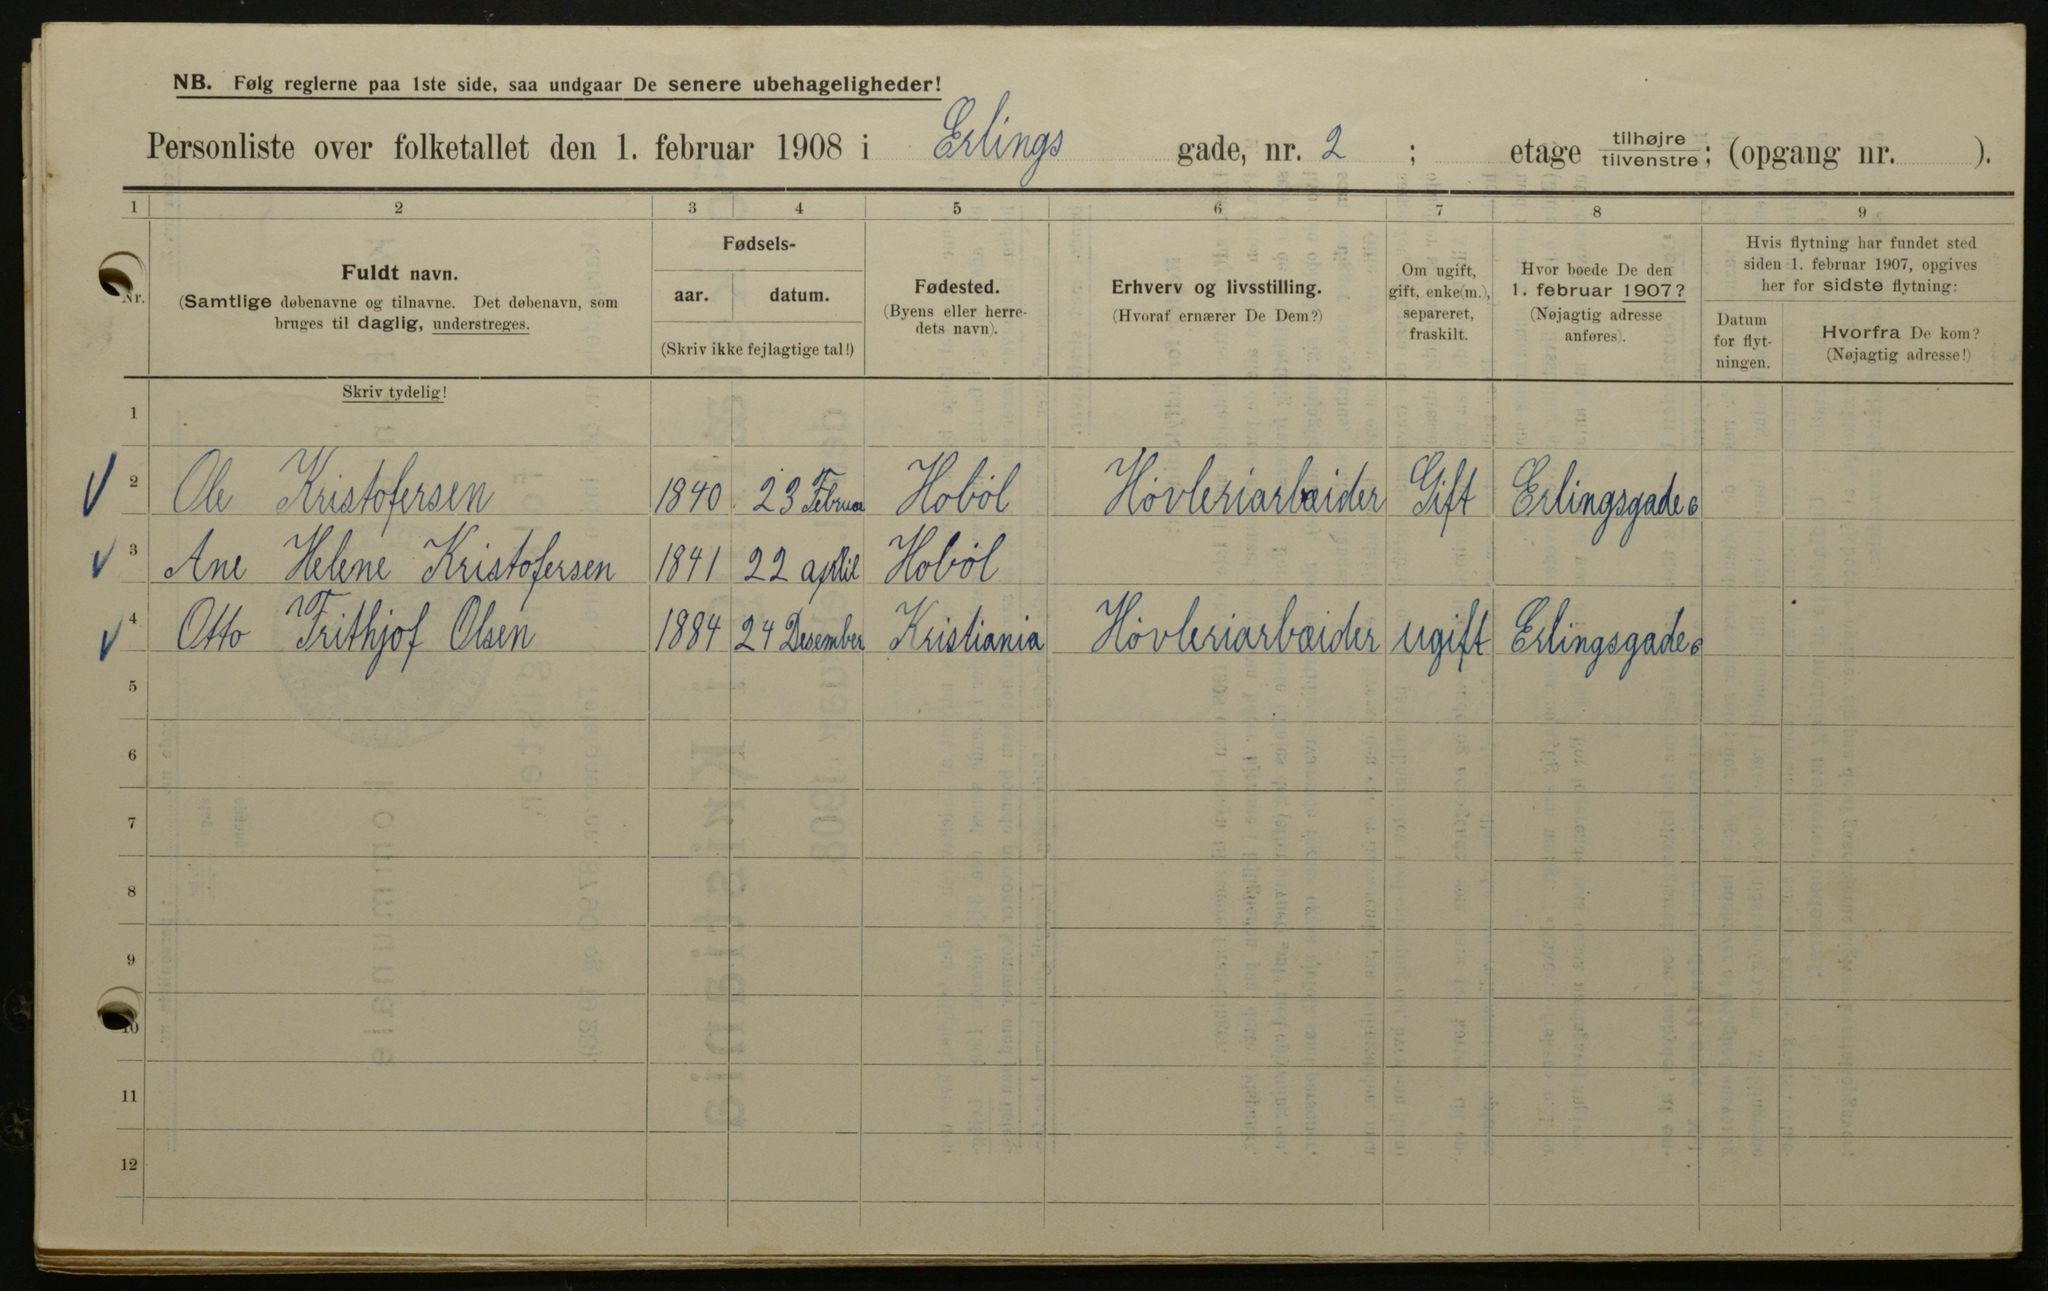 NB. Følg reglerne paa 1ste side, saa undgaar De senere ubehageligheder!
Personliste over folketallet den 1. februar 1908 i Erlings gade, nr. 2 ; etage tilhøjre/tilvenstre; (opgang nr. ).
1 2 3 4 5 6 7 8 9
Nr.
Fuldt navn.
(Samtlige døbenavne og tilnavne. Det døbenavn, som
bruges til daglig, understreges.
Skriv tydelig!
Fødsels-
aar. datum.
(Skriv ikke fejlagtige tal!)
Fødested.
(Byens eller herre-
dets navn).
Erhverv og livsstilling.
(Hvoraf ernærer De Dem?)
Om ugift,
gift, enke(m.),
separeret,
fraskilt.
Hvor boede De den
1. februar 1907?
(Nøjagtig adresse
anføres).
Hvis flytning har fundet sted
siden 1. februar 1907, opgives
her for sidste flytning:
Datum
for flyt-
ningen.
Hvorfra De kom?
(Nøjagtig adresse!)
1
2 Ole Kristofersen 1840 23 Februar Hobøl Høvleriarbeider Gift Erlingsgade 6
3 Ane Helene Kristofersen 1841 22 april Hobøl
4 Otto Frithjof Olsen 1884 24 Desember Kristiania Høvleriarbeider ugift Erlingsgade 6
5
6
7
8
9
10
11
12